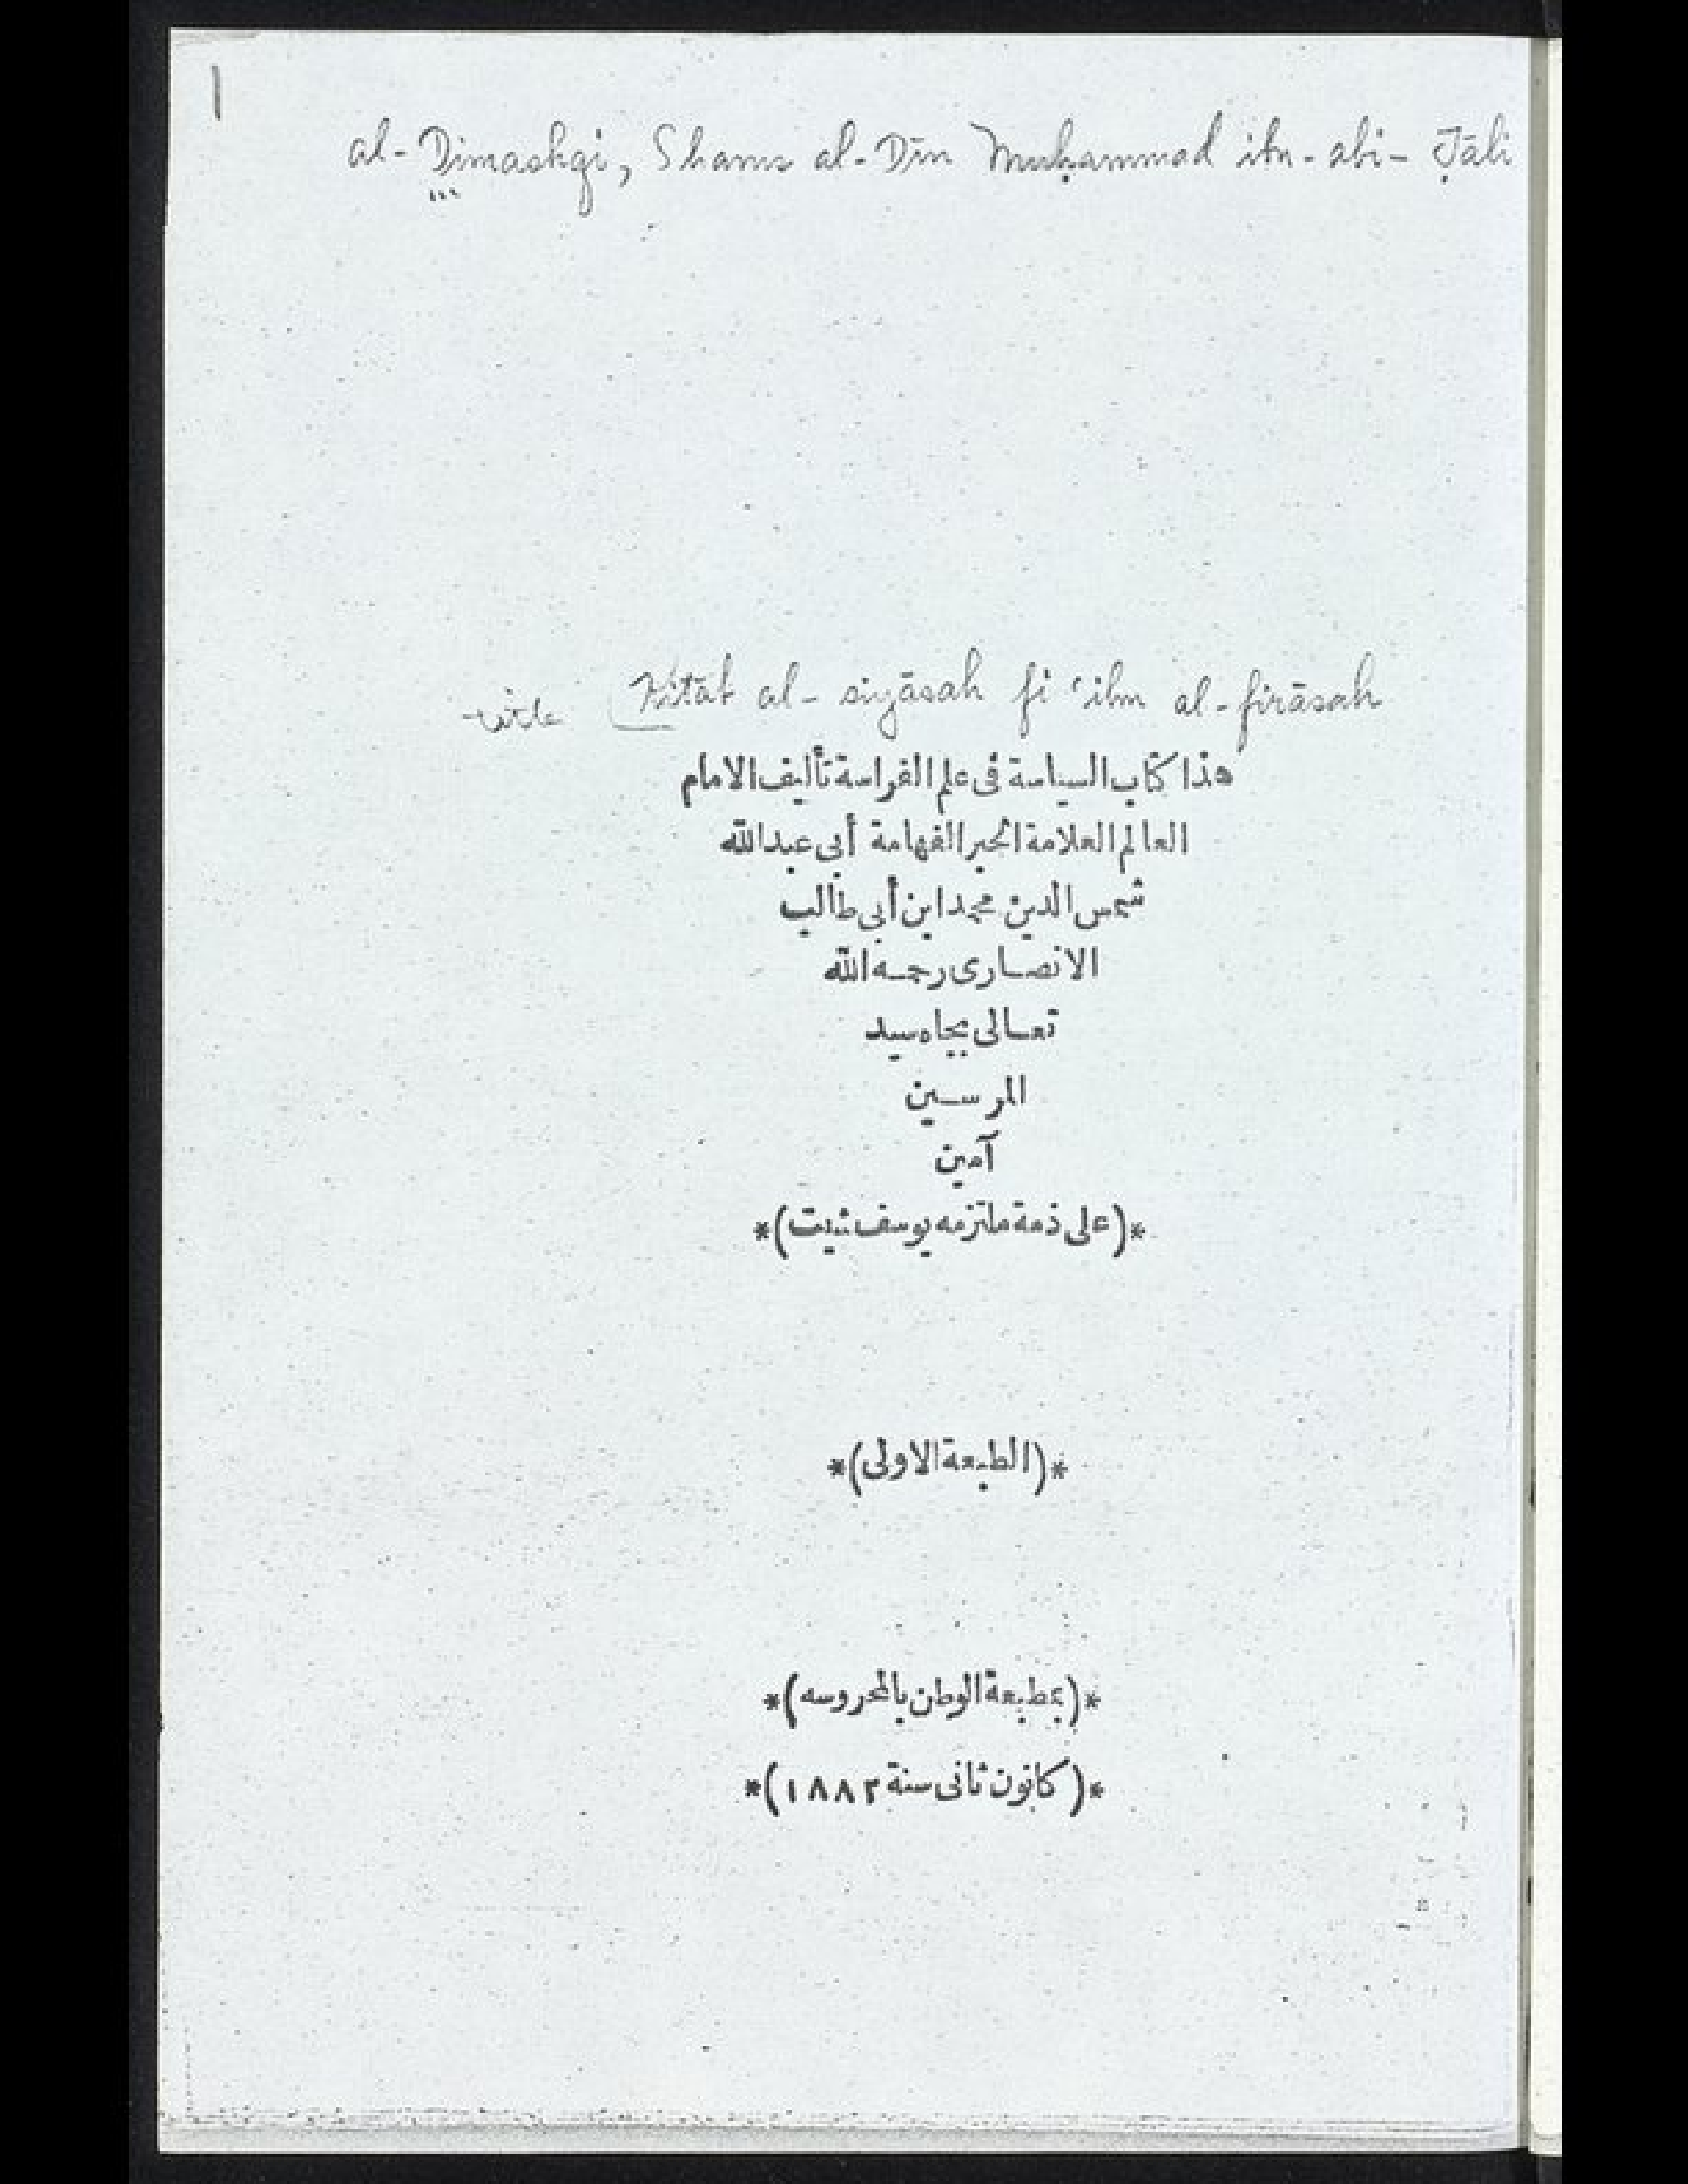 al-Dimashqi, Shams al-Dīn Muḥammad ibn-abi-Ṭāli
title Kitāb al-siyāsah fi ʻilm al-firāsah
هذا كتاب السياسة فى علم الفراسة تأليف الامام
العالم العلامة الحبر الفهامة أبى عبدالله
شمس الدين محمد ابن أبى طالب
الانصارى رحمه الله
تعالى بجاه سيد
المرسين
آمين
*(على ذمة ملتزمه يوسف ثيت)*
*(الطبعة الاولى)*
*(بمطبعة الوطن بالمحروسه)*
*(كانون ثانى سنة ١٨٨٢)*